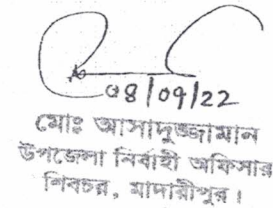 ০৪/০৭/২২
মোঃ আসাদুজ্জামান
উপজেলা নির্বাহী অফিসার
শিবচর, মাদারীপুর।